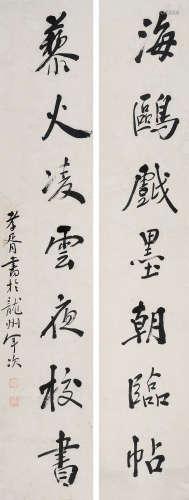 海鷗戲墨朝臨帖
藜火凌雲夜校書
孝胥書於龍州軍次